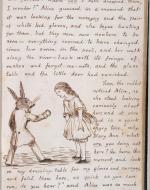 them, I wonder?" Alice guessed in a moment that
it was looking for the nosegay and the pair
of white kid gloves, and she began hunting
for them, but they were now nowhere to be
seen — everything seemed to have changed
since her swim in the pool, and her walk
along the river-bank with its fringe of
rushes and forget-me-nots, and the glass
table and the little door had vanished.
Soon the rabbit
noticed Alice, as
she stood looking
curiously about
her, and at
once said in a
quick angry
tone,
and look
on my dressing-table for my gloves and nosegay,
and fetch them here, as quick as you can
run, do you hear?" and Alice was so much